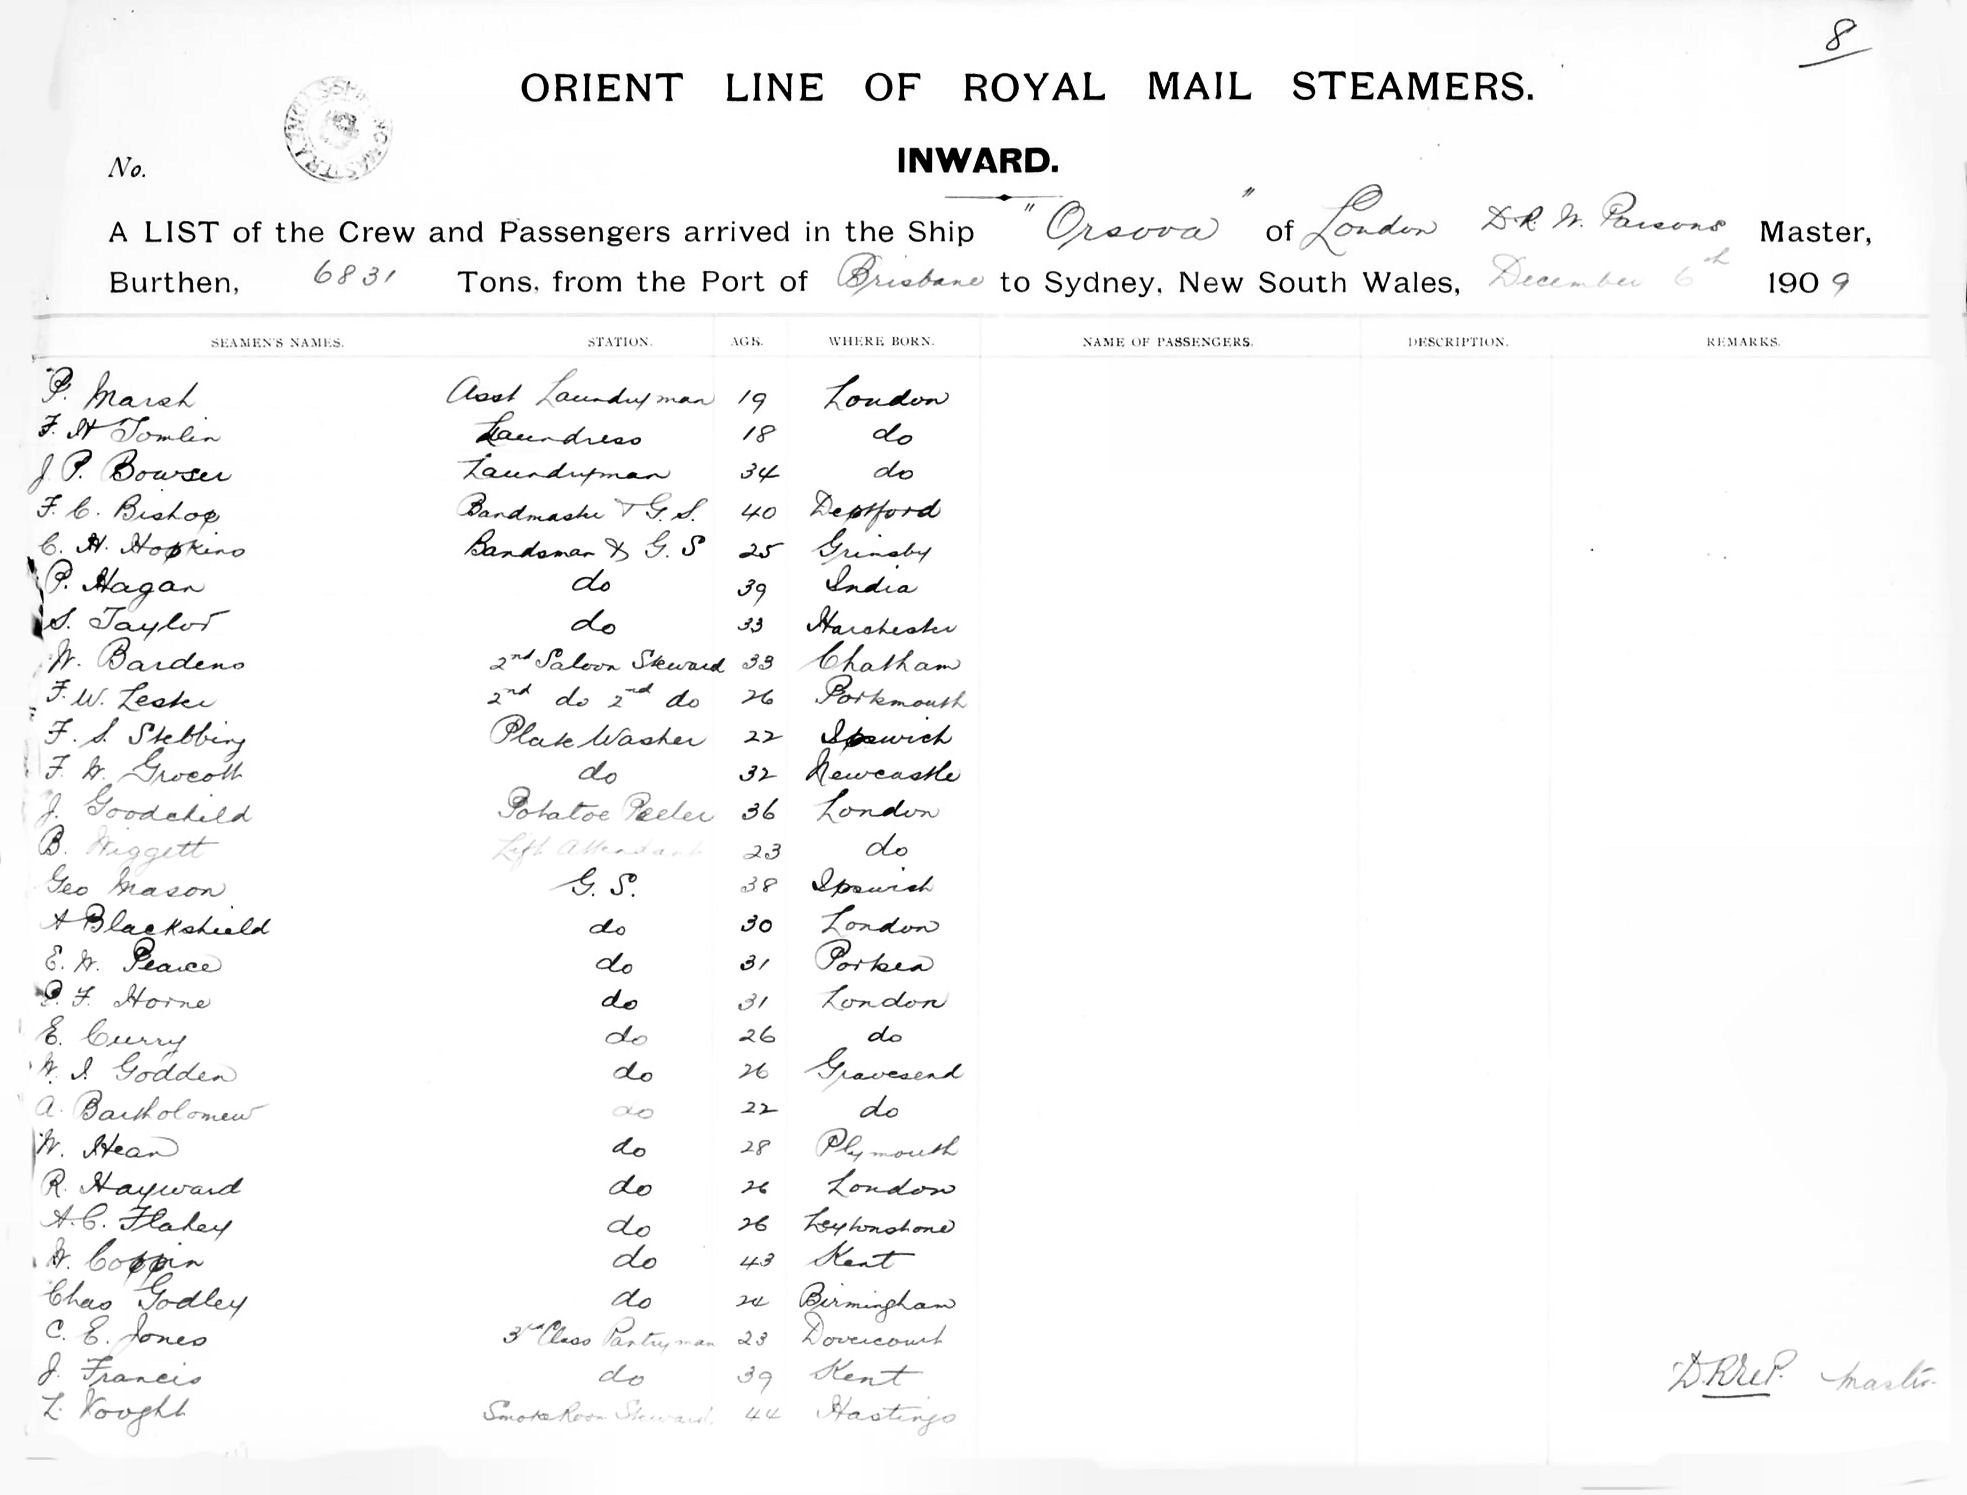 8
ORIENT LINE OF ROYAL MAIL STEAMERS.
INWARD.
No.
A LIST of the Crew and Passengers arrived in the Ship "Orsova" of London D.R. W. Parsons Master,
Burthen, 6831 Tons, from the Port of Brisbane to Sydney, New South Wales, December 6th 1909
SEAMEN'S NAMES. STATION. AGE. WHERE BORN. NAME OF PASSENGERS. DESCRIPTION. REMARKS.
P. Marsh Asst Laundryman 19 London
F. H Tomlin Laundress 18 do
J P. Bowser Laundryman 34 do
F. C. Bishop Bandmaster & G. S. 40 Deptford
C. H. Hopkins Bandsman & G. S 25 Grimsby
P. Hagan do 39 India
S. Taylor do 33
W. Bardens 2nd Saloon Steward 33 Chatham
F. W. Lester 2nd do 2nd do 26 Portsmouth
F. S. Stebbing Plate Washer 22 Ipswich
F. W. Grocott do 32 Newcastle
J. Goodchild Potatoe Peeler 36 London
B. Wiggett Lift Attendant 23 do
Geo Mason G. S. 38 Ipswich
A Blackshield do 30 London
E. W. Pearce do 31 Portsea
P. F. Horne do 31 London
E. Curry do 26 do
W. I. Godden do 26 Gravesend
A. Bartholomew do 22 do
W. Hean do 28 Plymouth
R. Hayward do 26 London
A. C. Flahey do 26 Leytonstone
W. Coppin do 43 Kent
Chas Godley do 24 Birmingham
C. E. Jones 3rd Class Pantryman 23 Dovercourt
J. Francis do 39 Kent
L. Vooght Smoke Room Steward 44 Hastings
Master